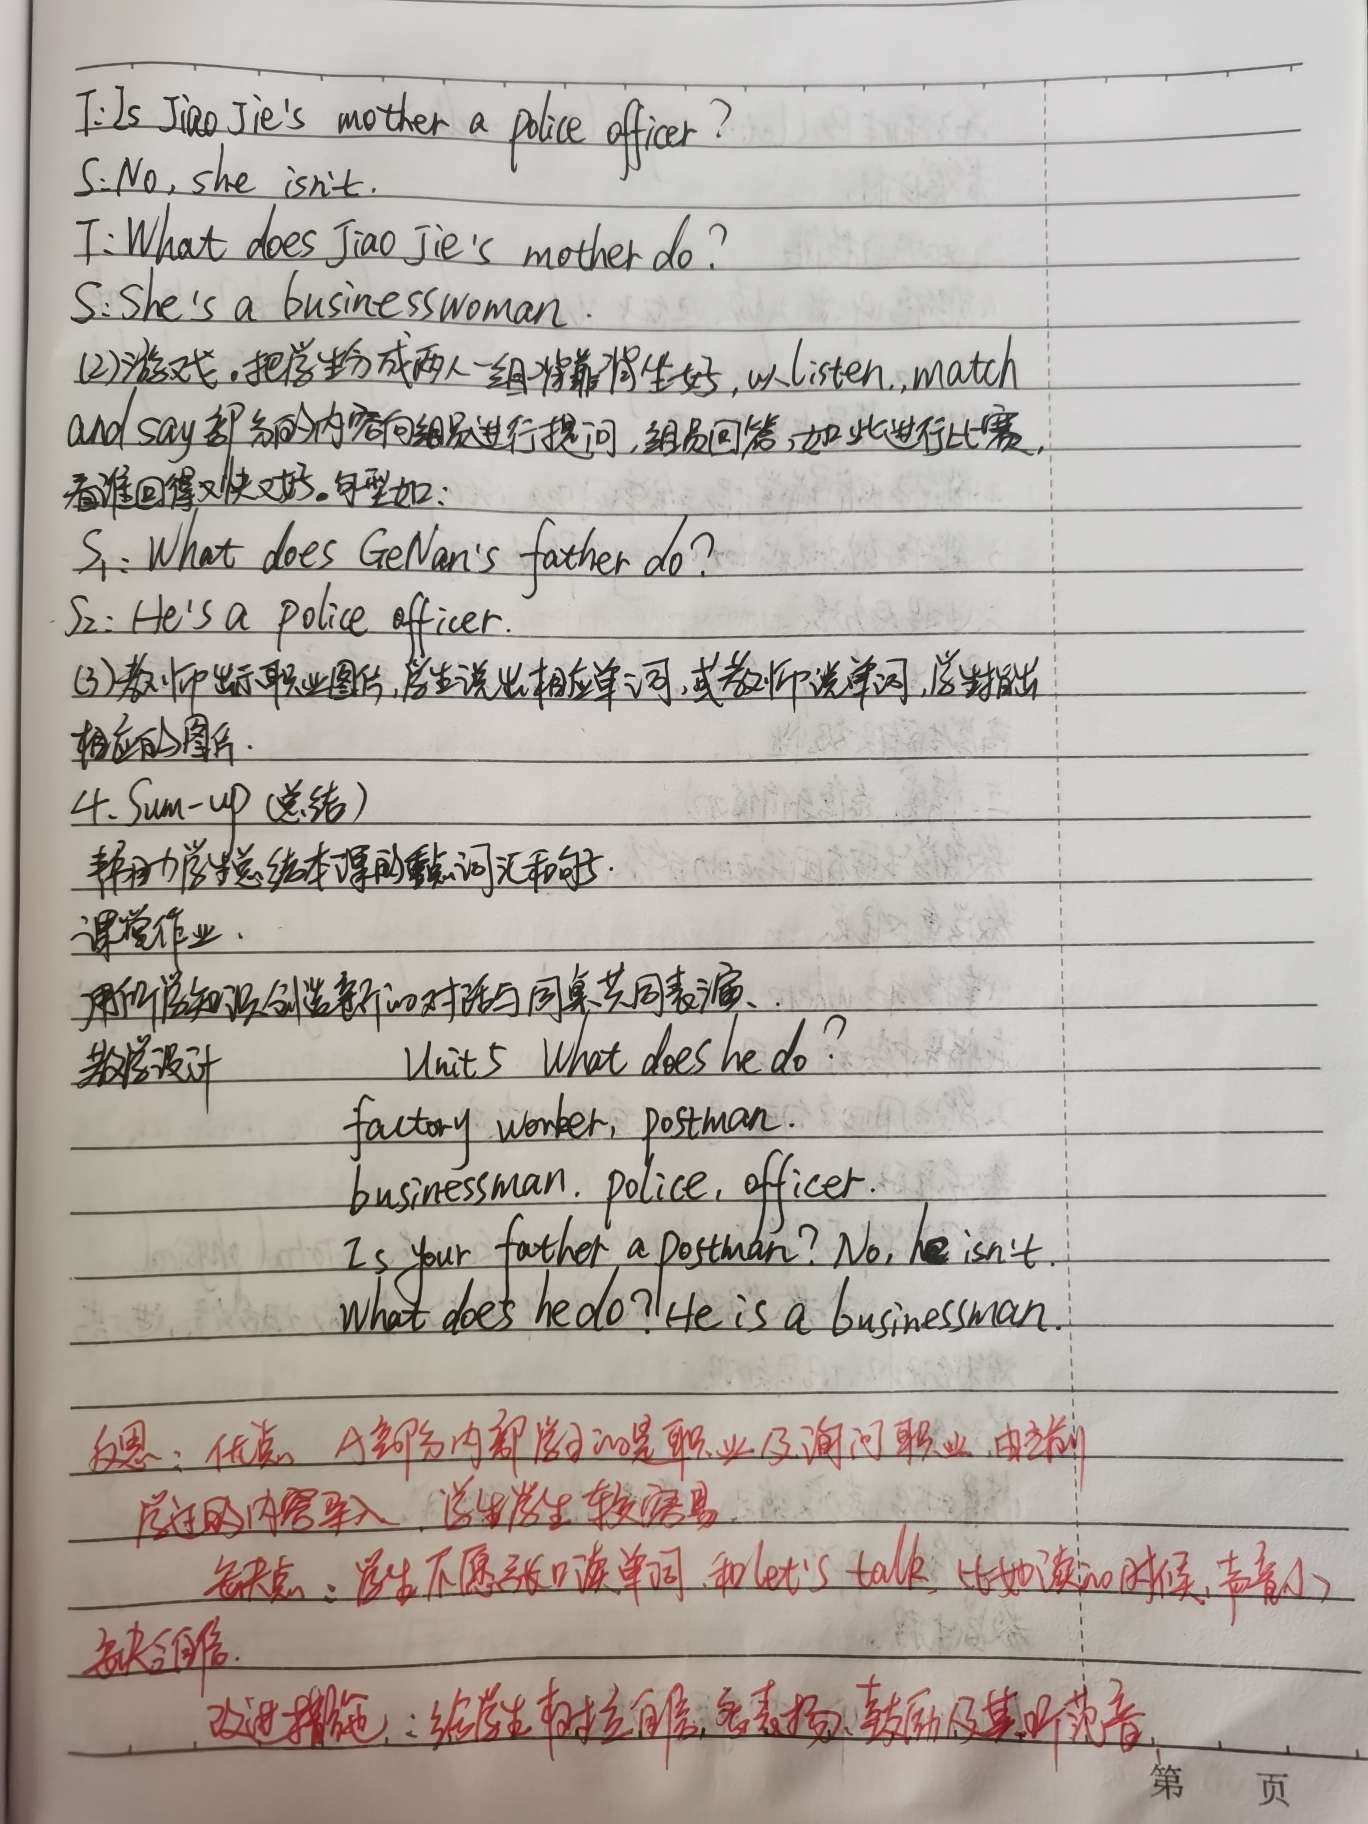 T: Is Jiao Jie's mother a police officer?
S: No, she isn't.
T: What does Jiao Jie's mother do?
S: She's a businesswoman.
(2)游戏。把学生分成两人一组背靠背坐好,以Listen, match
and say部分的内容向组员进行提问,组员回答,如此进行比赛,
看谁回得又快又好。句型如:
S1: What does GeNan's father do?
S2: He's a police officer.
(3)教师出示职业图片,学生说出相应单词,或教师说单词,学生指出
相应的图片.
4. Sum-up (总结)
帮助学生总结本课的重点词汇和句子.
课堂作业.
用所学知识创造新的对话与同桌共同表演.
教学设计 Unit5 What does he do?
factory worker, postman.
businessman. police, officer.
Is your father a postman? No, he isn't.
What does he do? He is a businessman.
反思: 优点 A部分内部学习的是职业及询问职业,由之前
学过的内容导入,学生学生较容易.
缺点: 学生不愿张口读单词,和let's talk,比如读的时候,声音小,
缺乏自信.
改进措施: 给学生树立自信,多表扬、鼓励及其听范音.
第 页